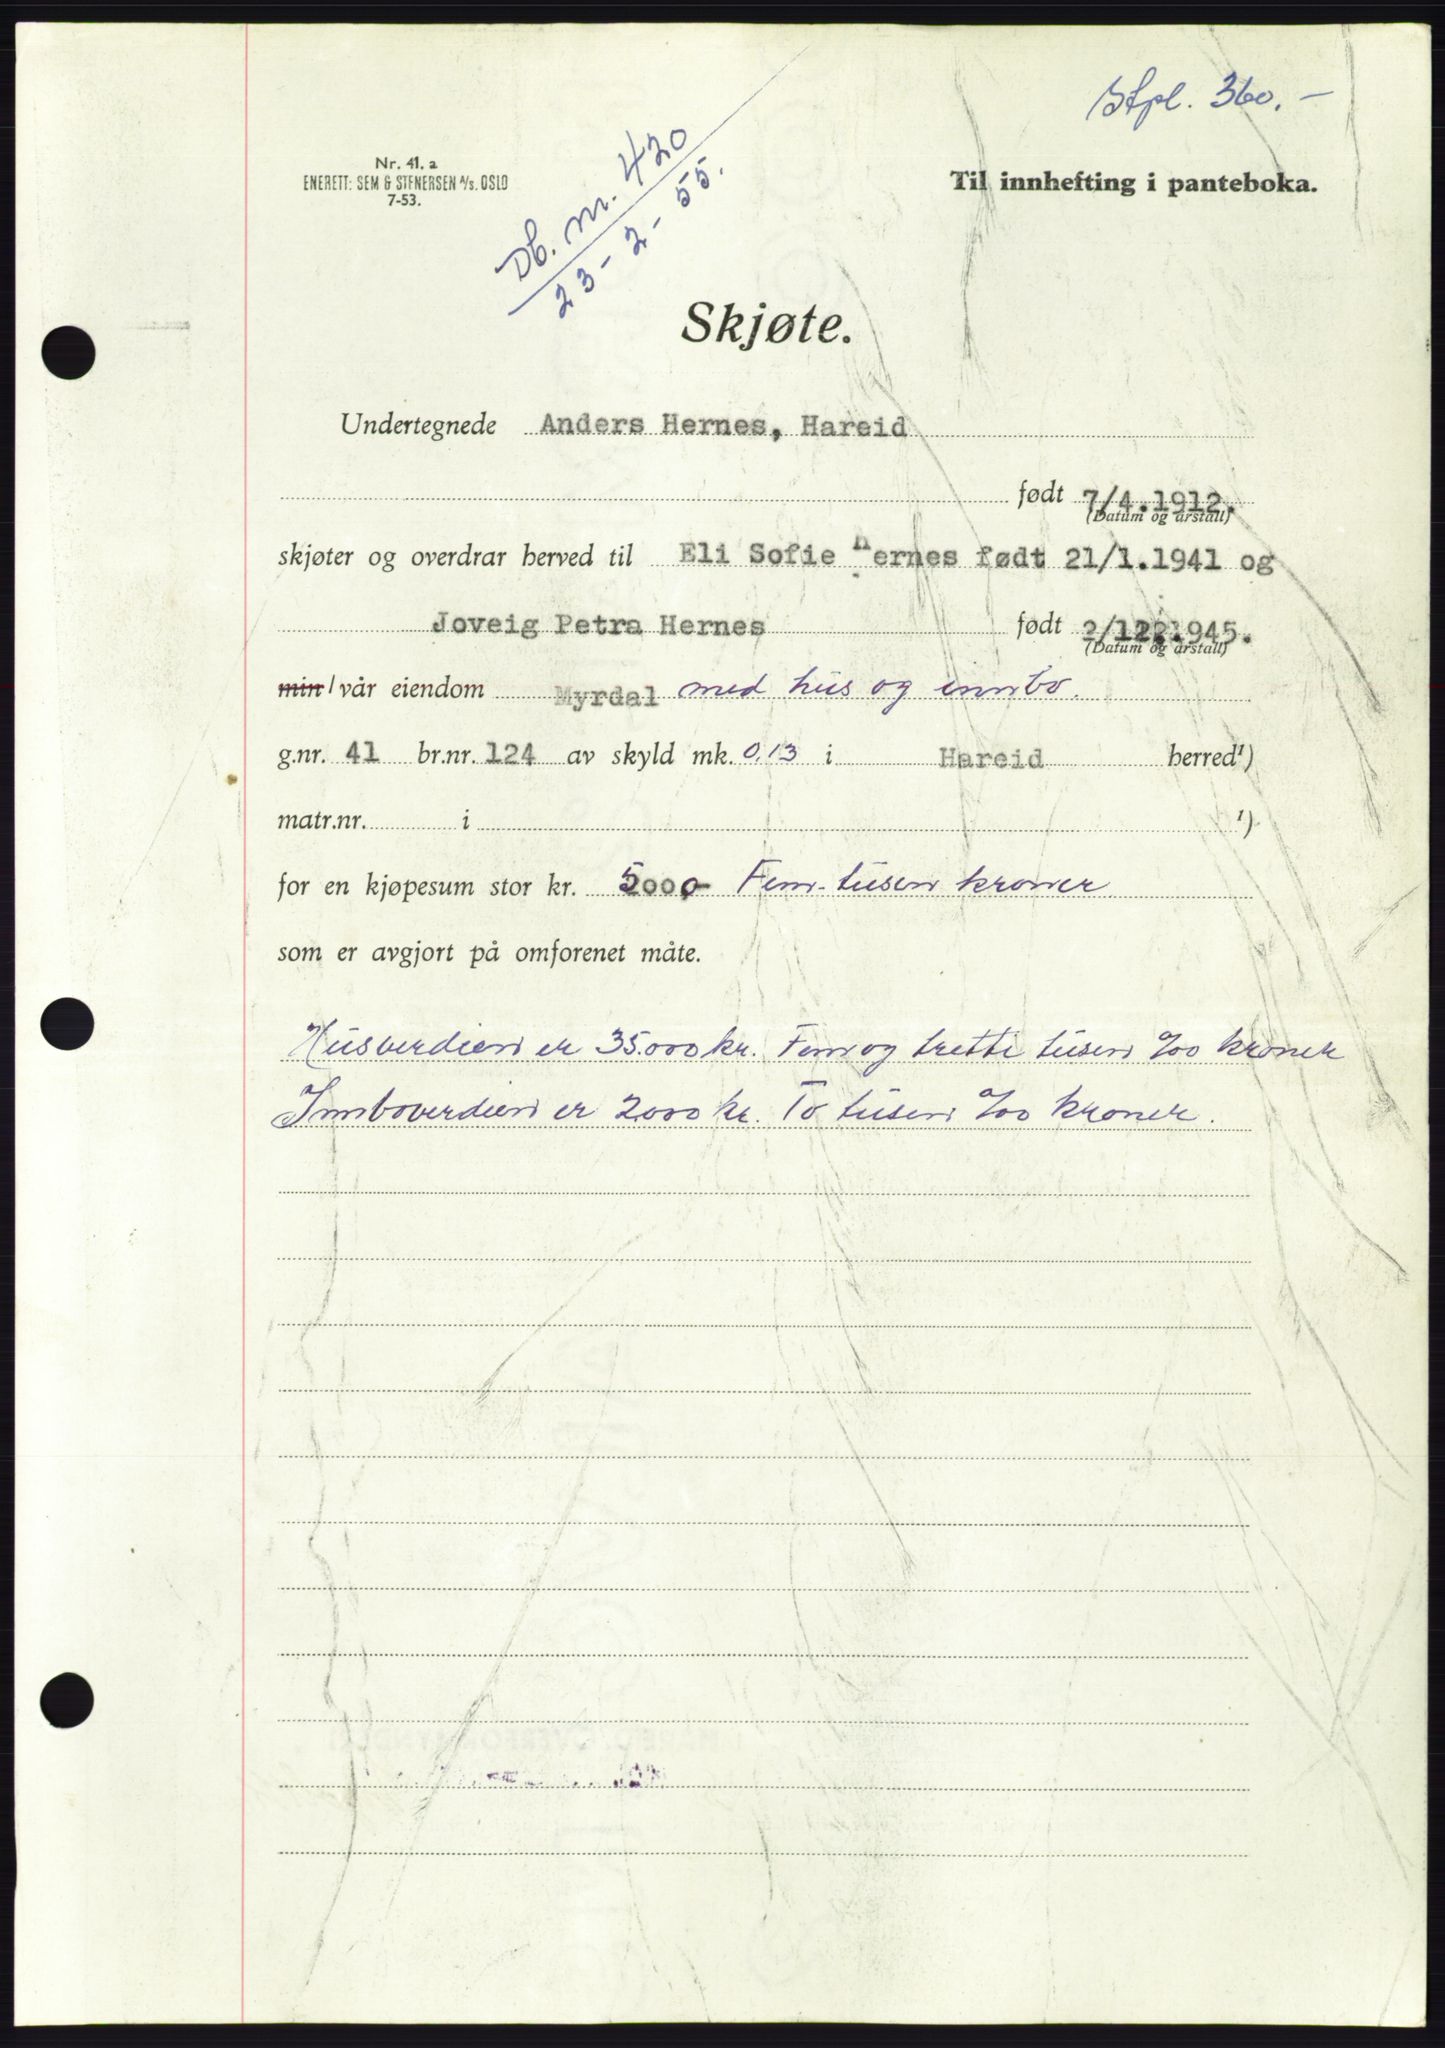 Stpl. 360.-
Nr. 41. a
ENERETT: SEM & STENERSEN A/S. OSLO
7-53.
Til innhefting i panteboka.
Db. nr. 420
23-2-55.
Skjøte.
Undertegnede Anders Hernes, Hareid
født 7/4.1912.
(Datum og årstall)
skjøter og overdrar herved til Eli Sofie Hernes født 21/1.1941 og
Joveig Petra Hernes født 2/12.1945.
(Datum og årstall)
min/vår eiendom Myrdal med hus og innbo.
g.nr. 41 br.nr. 124 av skyld mk. 0,13 i Hareid herred¹)
matr.nr. i ¹)
for en kjøpesum stor kr. 5000,- Fem-tusen kroner
som er avgjort på omforenet måte.
Husverdien er 35.000 kr. Fem og tretti tusen %oo kroner
Innboverdien er 2.000 kr. To tusen %oo kroner.